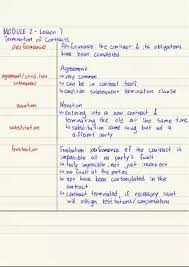 MODULE 2 - Lesson 7
Termination of Contracts
performance
Performance: the contract & its obligations
have been completed
Agreement
agreement/condition
subsequent
↳ very common
↳ can be in contract itself
↳ condition subsequent termination clause
novation
Novation
↳ entering into a new contract &
terminating the old at the same time
substitution
↳ substitution same thing but w/ a
different party
frustration
Frustration: performance of the contract is
impossible at no party's fault
↳ truly impossible, not just inconvenient
↳ no fault of the parties
↳ not have been contemplated in the
contract
↳ contract terminated, if necessary court
will assign restitution/compensation